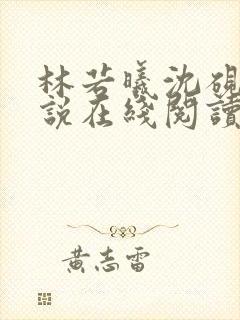 林若曦沈硯
說在綫閱讀
黃志雷